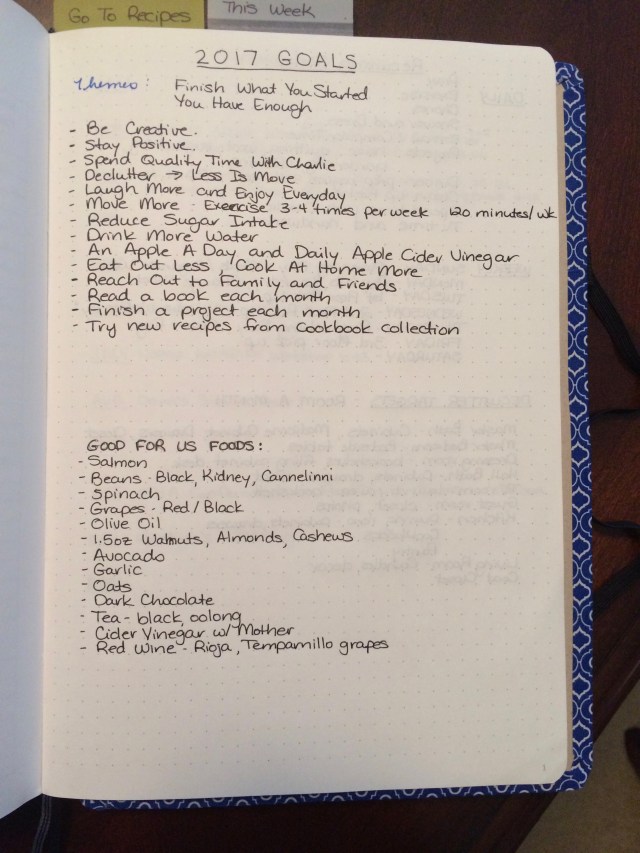 Go To Recipes
This Week
2017 GOALS
Themes: Finish What You Started
You Have Enough
- Be Creative.
- Stay Positive.
- Spend Quality Time With Charlie
- Declutter → Less Is More
- Laugh More and Enjoy Everyday
- Move More - Exercise 3-4 times per week 120 minutes/wk
- Reduce Sugar Intake
- Drink More Water
- An Apple A Day and Daily Apple Cider Vinegar
- Eat Out Less, Cook At Home More
- Reach Out to Family and Friends
- Read a book each month
- Finish a project each month
- Try new recipes from Cookbook collection
GOOD FOR US FOODS:
- Salmon
- Beans - Black, Kidney, Cannelinni
- Spinach
- Grapes - Red/Black
- Olive Oil
- 1.5oz Walnuts, Almonds, Cashews
- Avocado
- Garlic
- Oats
- Dark Chocolate
- Tea - black, oolong
- Cider Vinegar w/ Mother
- Red Wine - Rioja, Tempranillo grapes
1